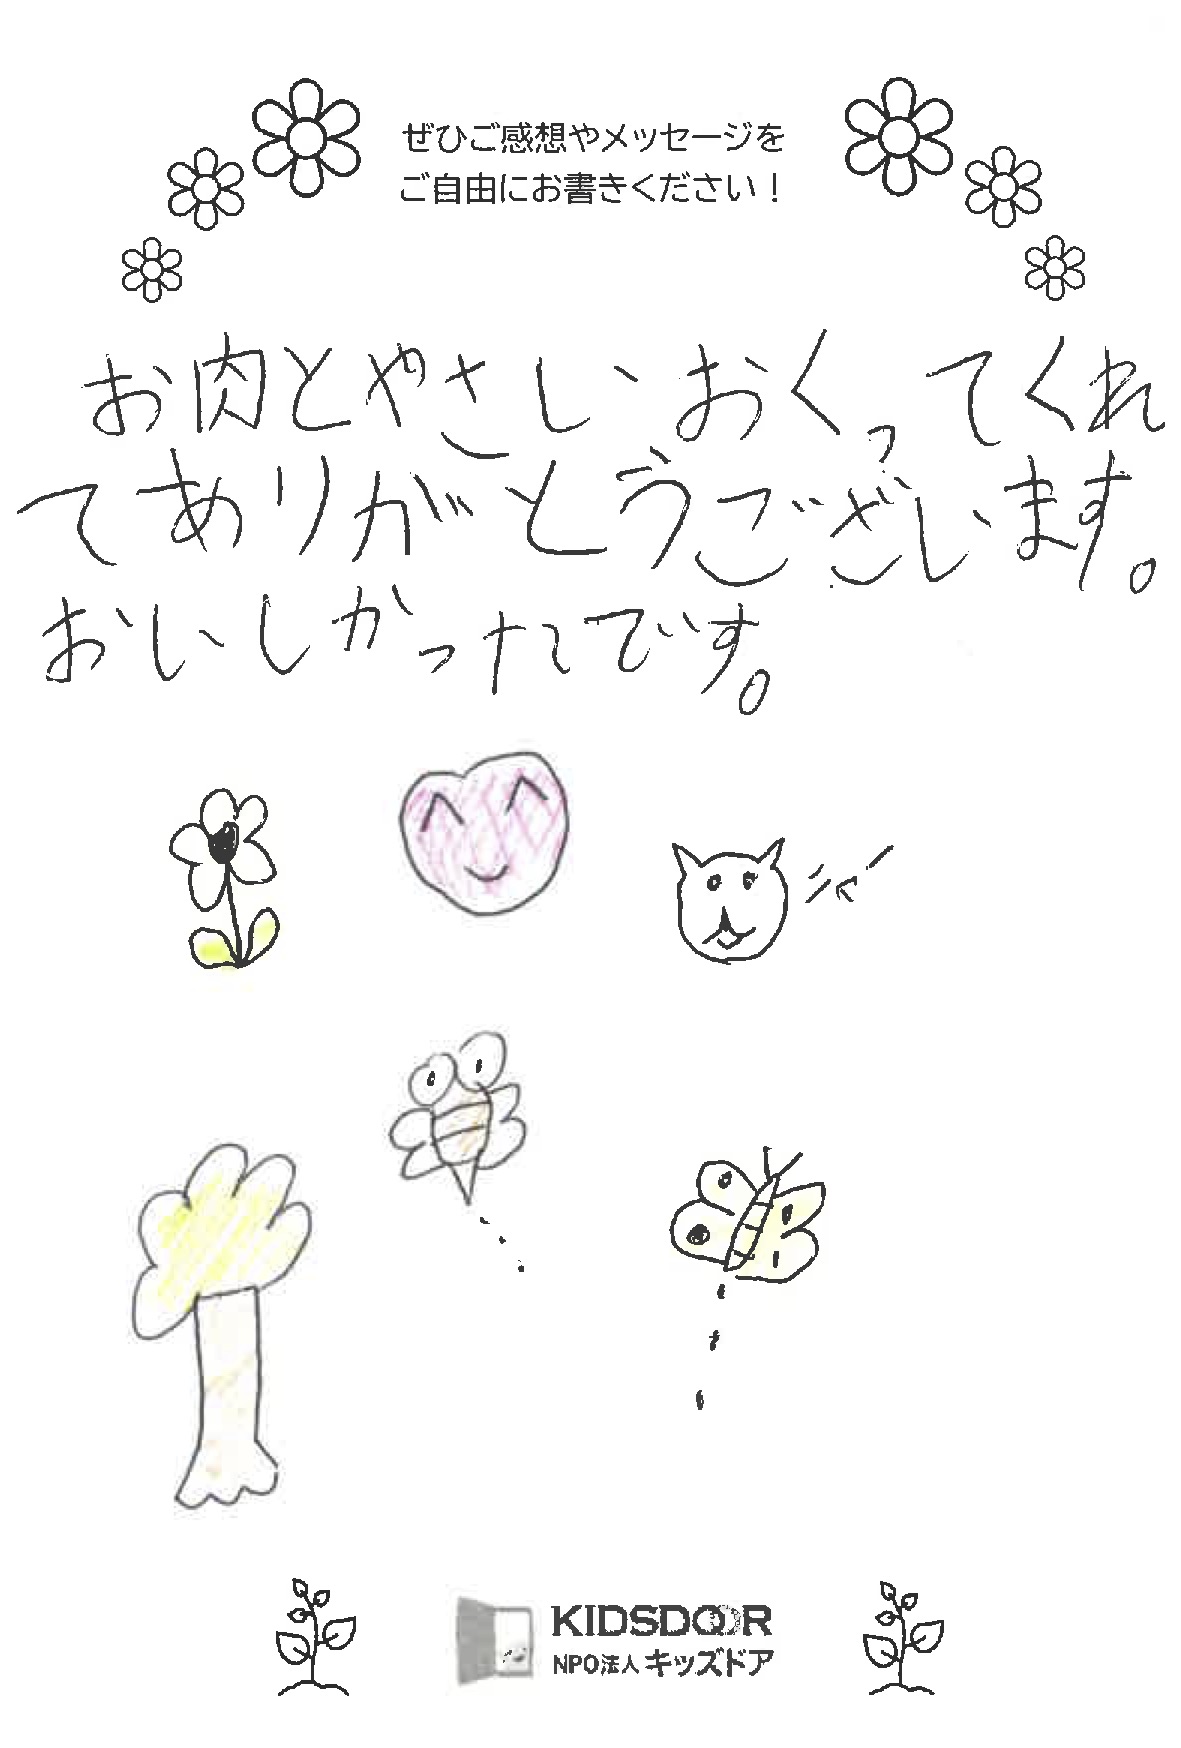 ぜひご感想やメッセージを
ご自由にお書きください！
お肉とやさいおくってくれ
てありがとうございます。
おいしかったです。
シャー
KIDSDOOR
NPO法人キッズドア